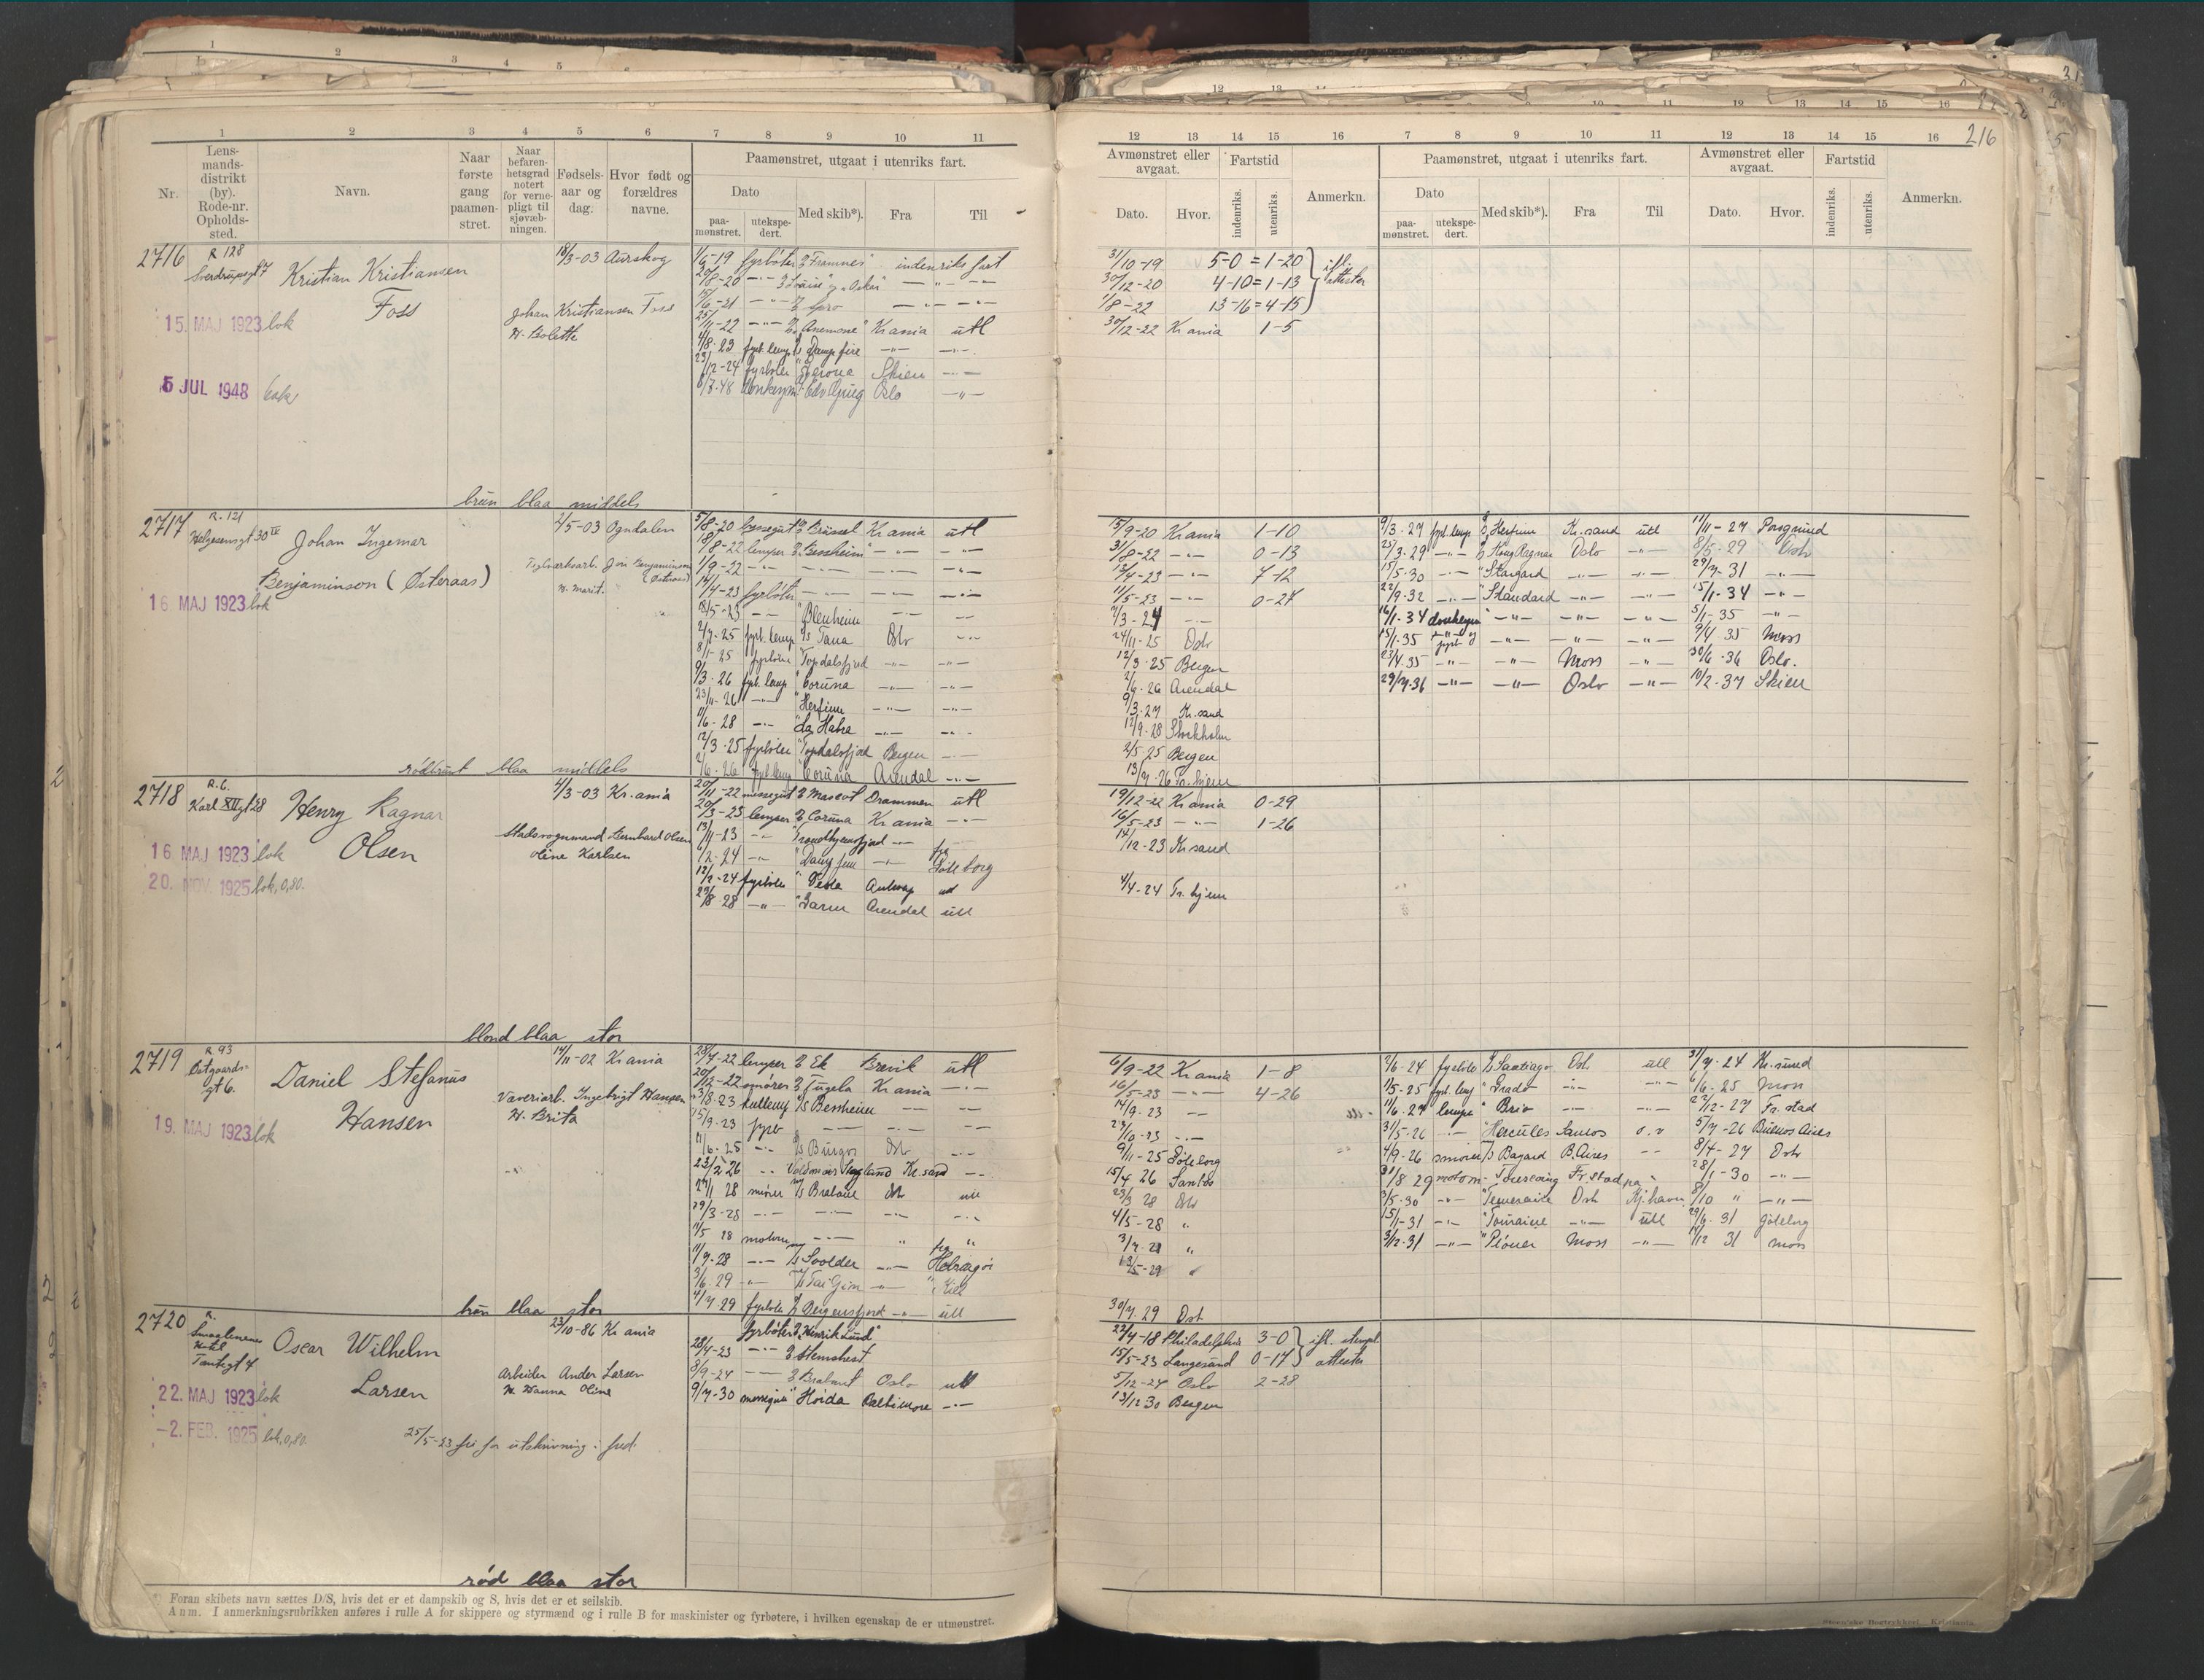 1 2 3 4 5 6 7 8 9 10 11
Nr.
Lens-
mands-
distrikt
(by).
Rode-nr.
Opholds-
sted.
Navn.
Naar
første
gang
paamøn-
stret.
Naar
befaren-
hetsgrad
notert
for verne-
pligt til
sjøvæb-
ningen.
Fødsels-
aar og
dag.
Hvor født og
forældres
navne.
Paamønstret, utgaat i utenriks fart.
Dato
paa-
mønstret.
utekspe-
dert.
Med skib*).
Fra
Til
2716 R 128
Kristian Kristiansen 18/3-03 Aurskog
Foss
Johan Kristiansen Foss
H. Bolette
15. MAJ 1923 lok
5 JUL 1948
1/5-19 fyrbøter "Framnes" indenriks fart
25/11-22 "Anemone" Kr ania utl
23/12-24 fyrbøter Skien
6/7-48 Edv Grieg Oslo
brun blaa middels
2717 R. 121
Helgesensgt 30 IV Johan Ingemar 2/5-03 Ogndalen
Benjaminson (Østeraas)
H. Marit.
16. MAJ 1923 lok
5/8-20 byssegut Brüssel Kr ania utl
1/8-22 lemper "Bessheim" -"- -"-
1/9-22 -"- -"- -"- -"-
14/4-23 fyrbøter -"- -"- -"-
18/5-23 -"- "Blenheim -"- -"-
2/7-25 fyrb. lemp Tana Oslo -"-
8/11-25 fyrbøter "Topdalsfjord -"- -"-
9/3-26 fyrb. lemp "Coruna -"- -"-
23/11-26 -"- "Herfinn -"- -"-
11/6-28 -"- "La Habra -"- -"-
12/3-25 fyrbøter "Topdalsfjord Bergen -"-
2/6-26 fyrb lemp "Coruna Arendal -"-
rødbrunt blaa middels
2718 R.C.
Karl XII gt 28 Henry Ragnar 4/3-03 Kr. ania
Olsen
Stadsvognmand Bernhard Olsen
Oline Karlsen
16. MAJ 1923 lok
20. NOV. 1925 lok, 0,80.
20/11-22 messegut Mascot Drammen utl
20/3-23 lemper Coruna Kr ania -"-
13/11-23 -"- Trondhjemsfjord -"-
1/2-24 -"- -"- Gøteborg
12/2-24 fyrbøter "Teda Antwrp utl
29/8 28 -"- Arendal utl
blond blaa stor
2719 R 93
Østgaards-
gt 6. Daniel Stefanus 14/11-02 Kr ania
Hansen
Væveriarb. Ingebrigt Hansen
H. Brita
19. MAJ 1923 lok
28/7-22 lemper Ek Brevik utl
20/12-22 smører Tugela Kr ania -"-
3/8-23 Bessheim -"- -"-
15/9-23 fyrb -"- -"- -"-
11/6-25 -"- Burgos Oslo -"-
23/2-26 -"- Valdemar Skogland Kr. sand -"-
27/1 28 smører Brabant Oslo utl
29/3-28 -"- -"- -"- -"-
11/5 28
11/9-28 -"- Soolder -"-
3/6 29 -"- Tai Yin -"-
4/7 29 fyrbøter Bergensfjord -"- utl
brun blaa stor
2720 R.
Smaalenenes
Hotel
Tomtegt 4 Oscar Wilhelm 23/10-86 Kr ania
Larsen
Arbeider Ander Larsen
H. Hanna Oline
22. MAJ 1923 lok
-2. FEB. 1925 lok, 0,80.
25/5-23 fri for utskrivning i fred.
fyrbøter "Henrik Lund"
28/4-23 -"- Stemshest
8/9-24 -"- Brabant Oslo utl
9/7-30 Hoida Baltimore -"-
rød blaa stor
*) Foran skibets navn sættes D/S, hvis det er et dampskib og S, hvis det er et seilskib.
Anm. I anmerkningsrubrikken anføres i rulle A for skippere og styrmænd og i rulle B for maskinister og fyrbøtere, i hvilken egenskap de er utmønstret.
12 13 14 15 16 7 8 9 10 11 12 13 14 15 16
216
Avmønstret eller
avgaat.
Dato. Hvor.
Fartstid
indenriks.
utenriks.
Anmerkn.
Paamønstret, utgaat i utenriks fart.
Dato
paa-
mønstret.
utekspe-
dert.
Med skib*).
Fra
Til
Avmønstret eller
avgaat.
Dato. Hvor.
Fartstid
indenriks.
utenriks.
Anmerkn.
31/10-19 5-0 = 1-20
30/12-20 4-10 = 1-13
1/8-22 13-16 = 4-15
ifl. attester
30/12-22 Kr ania 1-5
15/9-20 Kr ania 1-10
31/8-22 -"- 0-13
13/4-23 -"- 7-12
11/5-23 -"- 0-27
7/3-24 -"-
24/11-25 Oslo
12/3-25 Bergen
2/6-26 Arendal
9/3-27 Kr. sand
12/9-28 Stockholm
2/5-25 Bergen
13/7-26 Tr. hjem
9/3-27 fyrb. lemp Herfinn Kr. sand utl 17/11-27 Porsgrund
25/3-29 -"- Kong Ragnar Oslo -"- 8/5-29 Oslo
15/5-30 -"- "Stargard -"- -"- 29/7-31 -"-
22/9-32 -"- "Standard -"- -"- 15/1-34 -"-
16/1-34 -"- -"- -"- 5/1-35 -"-
15/1-35 -"- -"- -"- 9/4 35 Moss
23/4-35 -"- -"- Moss -"- 30/6-36 Oslo.
29/7-36 -"- -"- Oslo -"- 10/2-37 Skien
19/12-22 Kr ania 0-29
16/5-23 -"- 1-26
14/12-23 Kr sand
4/4-24 Tr. hjem
6/9-22 Kr ania 1-8
16/5-23 -"- 4-26
14/9-23 -"-
23/10-23 -"-
9/11-25 Gøteborg
15/4 26 Santos
23/3 28 Oslo
4/5-28 "
3/7-28 "
13/5-29 "
30/7. 29 Oslo
2/6-24 fyrbøter Santiago Oslo utl 31/7-24 Kr. sund
11/5-25 fyrb. lemp "Grado -"- -"- 6/6. 25 Moss
11/6-27 lemper "Brio -"- -"- 22/12-27 Fr. stad
31/5-26 -"- "Hercules Santos o.v 5/7-26 Buenos Aires
4/9-26 smører Bayard B. Aires -"- 8/4-27 Oslo
31/8 29 motorm. Fr. stad 28/1-30 -"-
3/5-30 -"- "Temeraire Oslo Kj. havn 8/10 " -"-
15/1-31 -"- "Touraine -"- utl 29/6. 31 Gøteborg
3/12-31 -"- "Pioner Moss -"- 17/12 31 Moss
22/4-18 Philadelphia 3-0
15/5-23 Langesund 0-17
ifl. stempl. attester
5/12-24 Oslo 2-28
13/12 30 Bergen